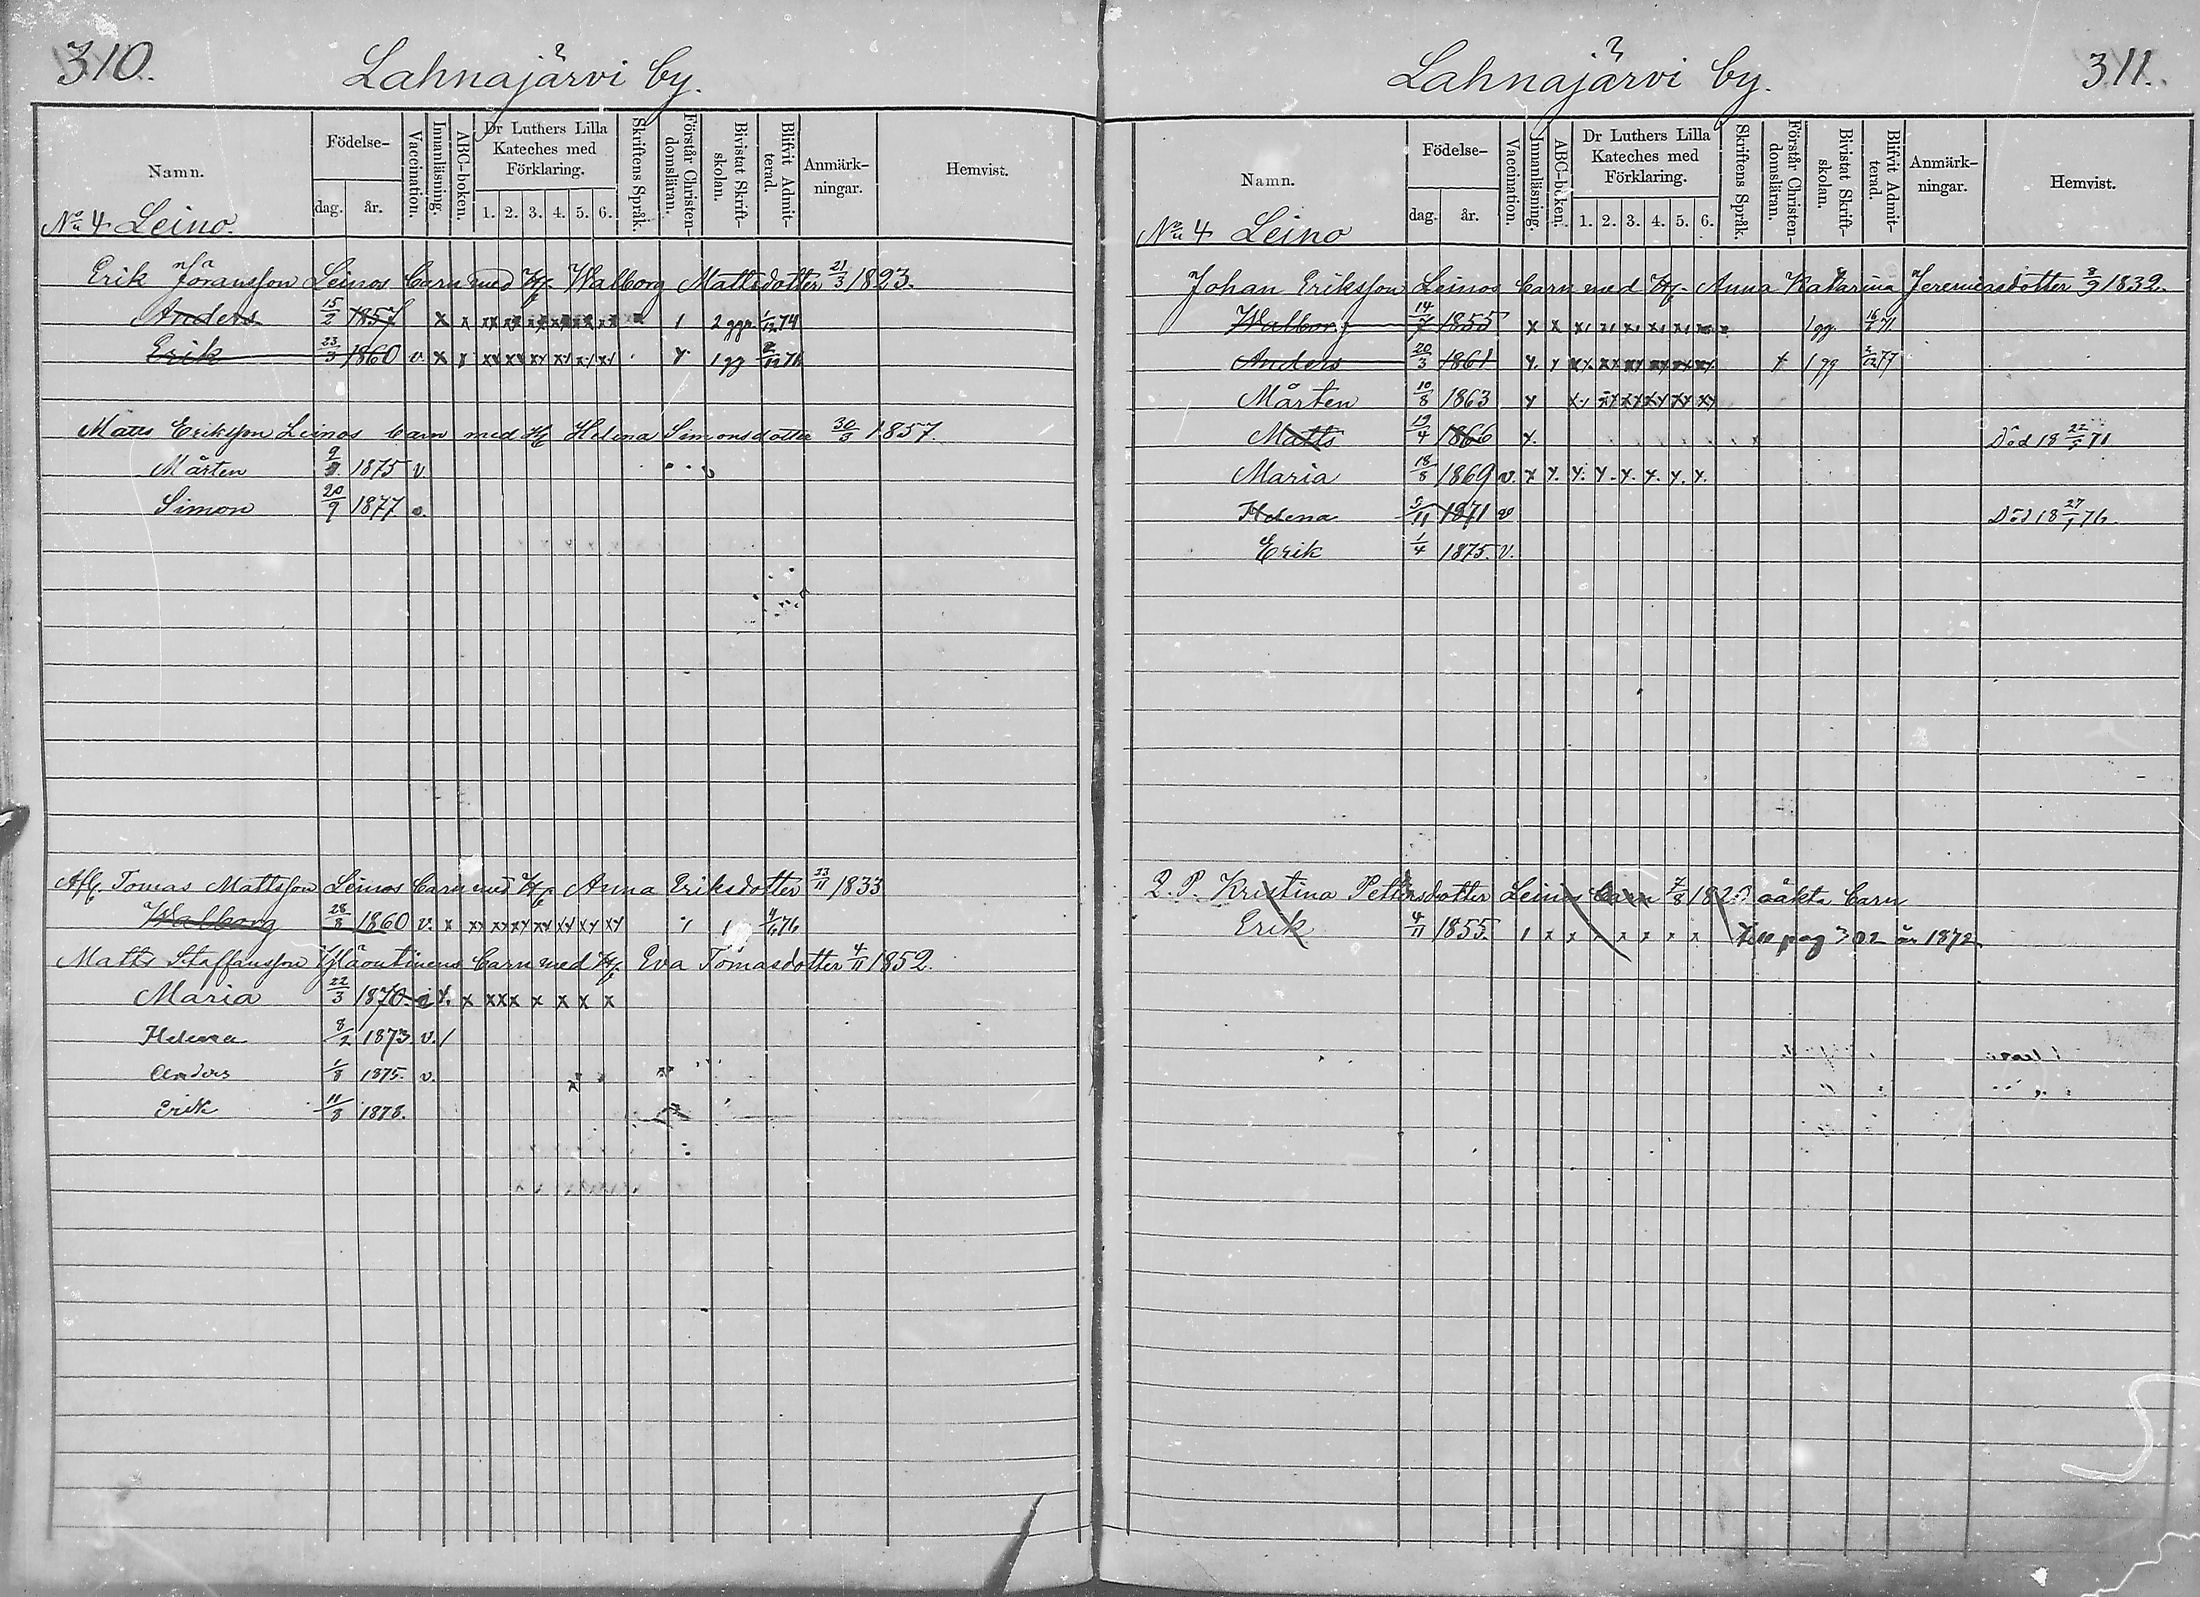 310.
Lahnajärvi by.
Namn.
Födelse-
dag. år.
Vaccination.
Innanläsning.
ABC-boken.
Dr Luthers Lilla Kateches med Förklaring.
1. 2. 3. 4. 5. 6.
Skriftens Språk.
Förstår Christendomsläran.
Bivistat Skriftskolan.
Blifvit Admitterad.
Anmärkningar.
Hemvist.
No 4 Leino.
Erik Jöransson Leinos barn med H. Walborg Mattsdotter 21/3 1823.
Anders 15/2 1857 x x xx xx xx xx xx xx 1 2 ggr 1/12 74
Erik 23/3 1860 v. x x xx xx xx xx xx xx 1 gg 76
Matts Eriksson Leinos barn med H Helena Simonsdotter 30/3 1857.
Mårten 1875 v.
Simon 20/9 1877 v.
Afl. Tomas Mattsson Leinos barn med H. Anna Eriksdotter 23/11 1833
Walborg 28/8 1860 v. x xx xx xx xx xx xx 76
Matts Staffansson barn med H. Eva Tomasdotter 4/11 1852.
Maria 22/3 1870 x xxx x x x x
Helena 8/2 1873 v. /
Anders 1/8 1875. v.
Erik 11/8 1878.
Lahnajärvi by.
311.
Namn.
Födelse-
dag. år.
Vaccination.
Innanläsning.
ABC-boken.
Dr Luthers Lilla Kateches med Förklaring.
1. 2. 3. 4. 5. 6.
Skriftens Språk.
Förstår Christendomsläran.
Bivistat Skriftskolan.
Blifvit Admitterad.
Anmärkningar.
Hemvist.
No 4 Leino
Johan Eriksson Leinos barn med H. Anna Katarina Jeremiasdotter 8/9 1832.
Walborg 14/7 1855 x x 1 gg. 71
Anders 20/3 1861 1 gg 2/12 77
Mårten 10/8 1863
Matts 19/4 1866 Död 18 22/5 71
Maria 18/8 1869 v.
Helena 5/11 1871 v Död 18 27/1 76.
Erik 1/4 1875. v.
Q. P. Kristina Pettersdotter Leinos barn 7/8 182 oäkta barn
Erik 4/11 1855. 1 x x x x x x x Till pag 302 år 1872.